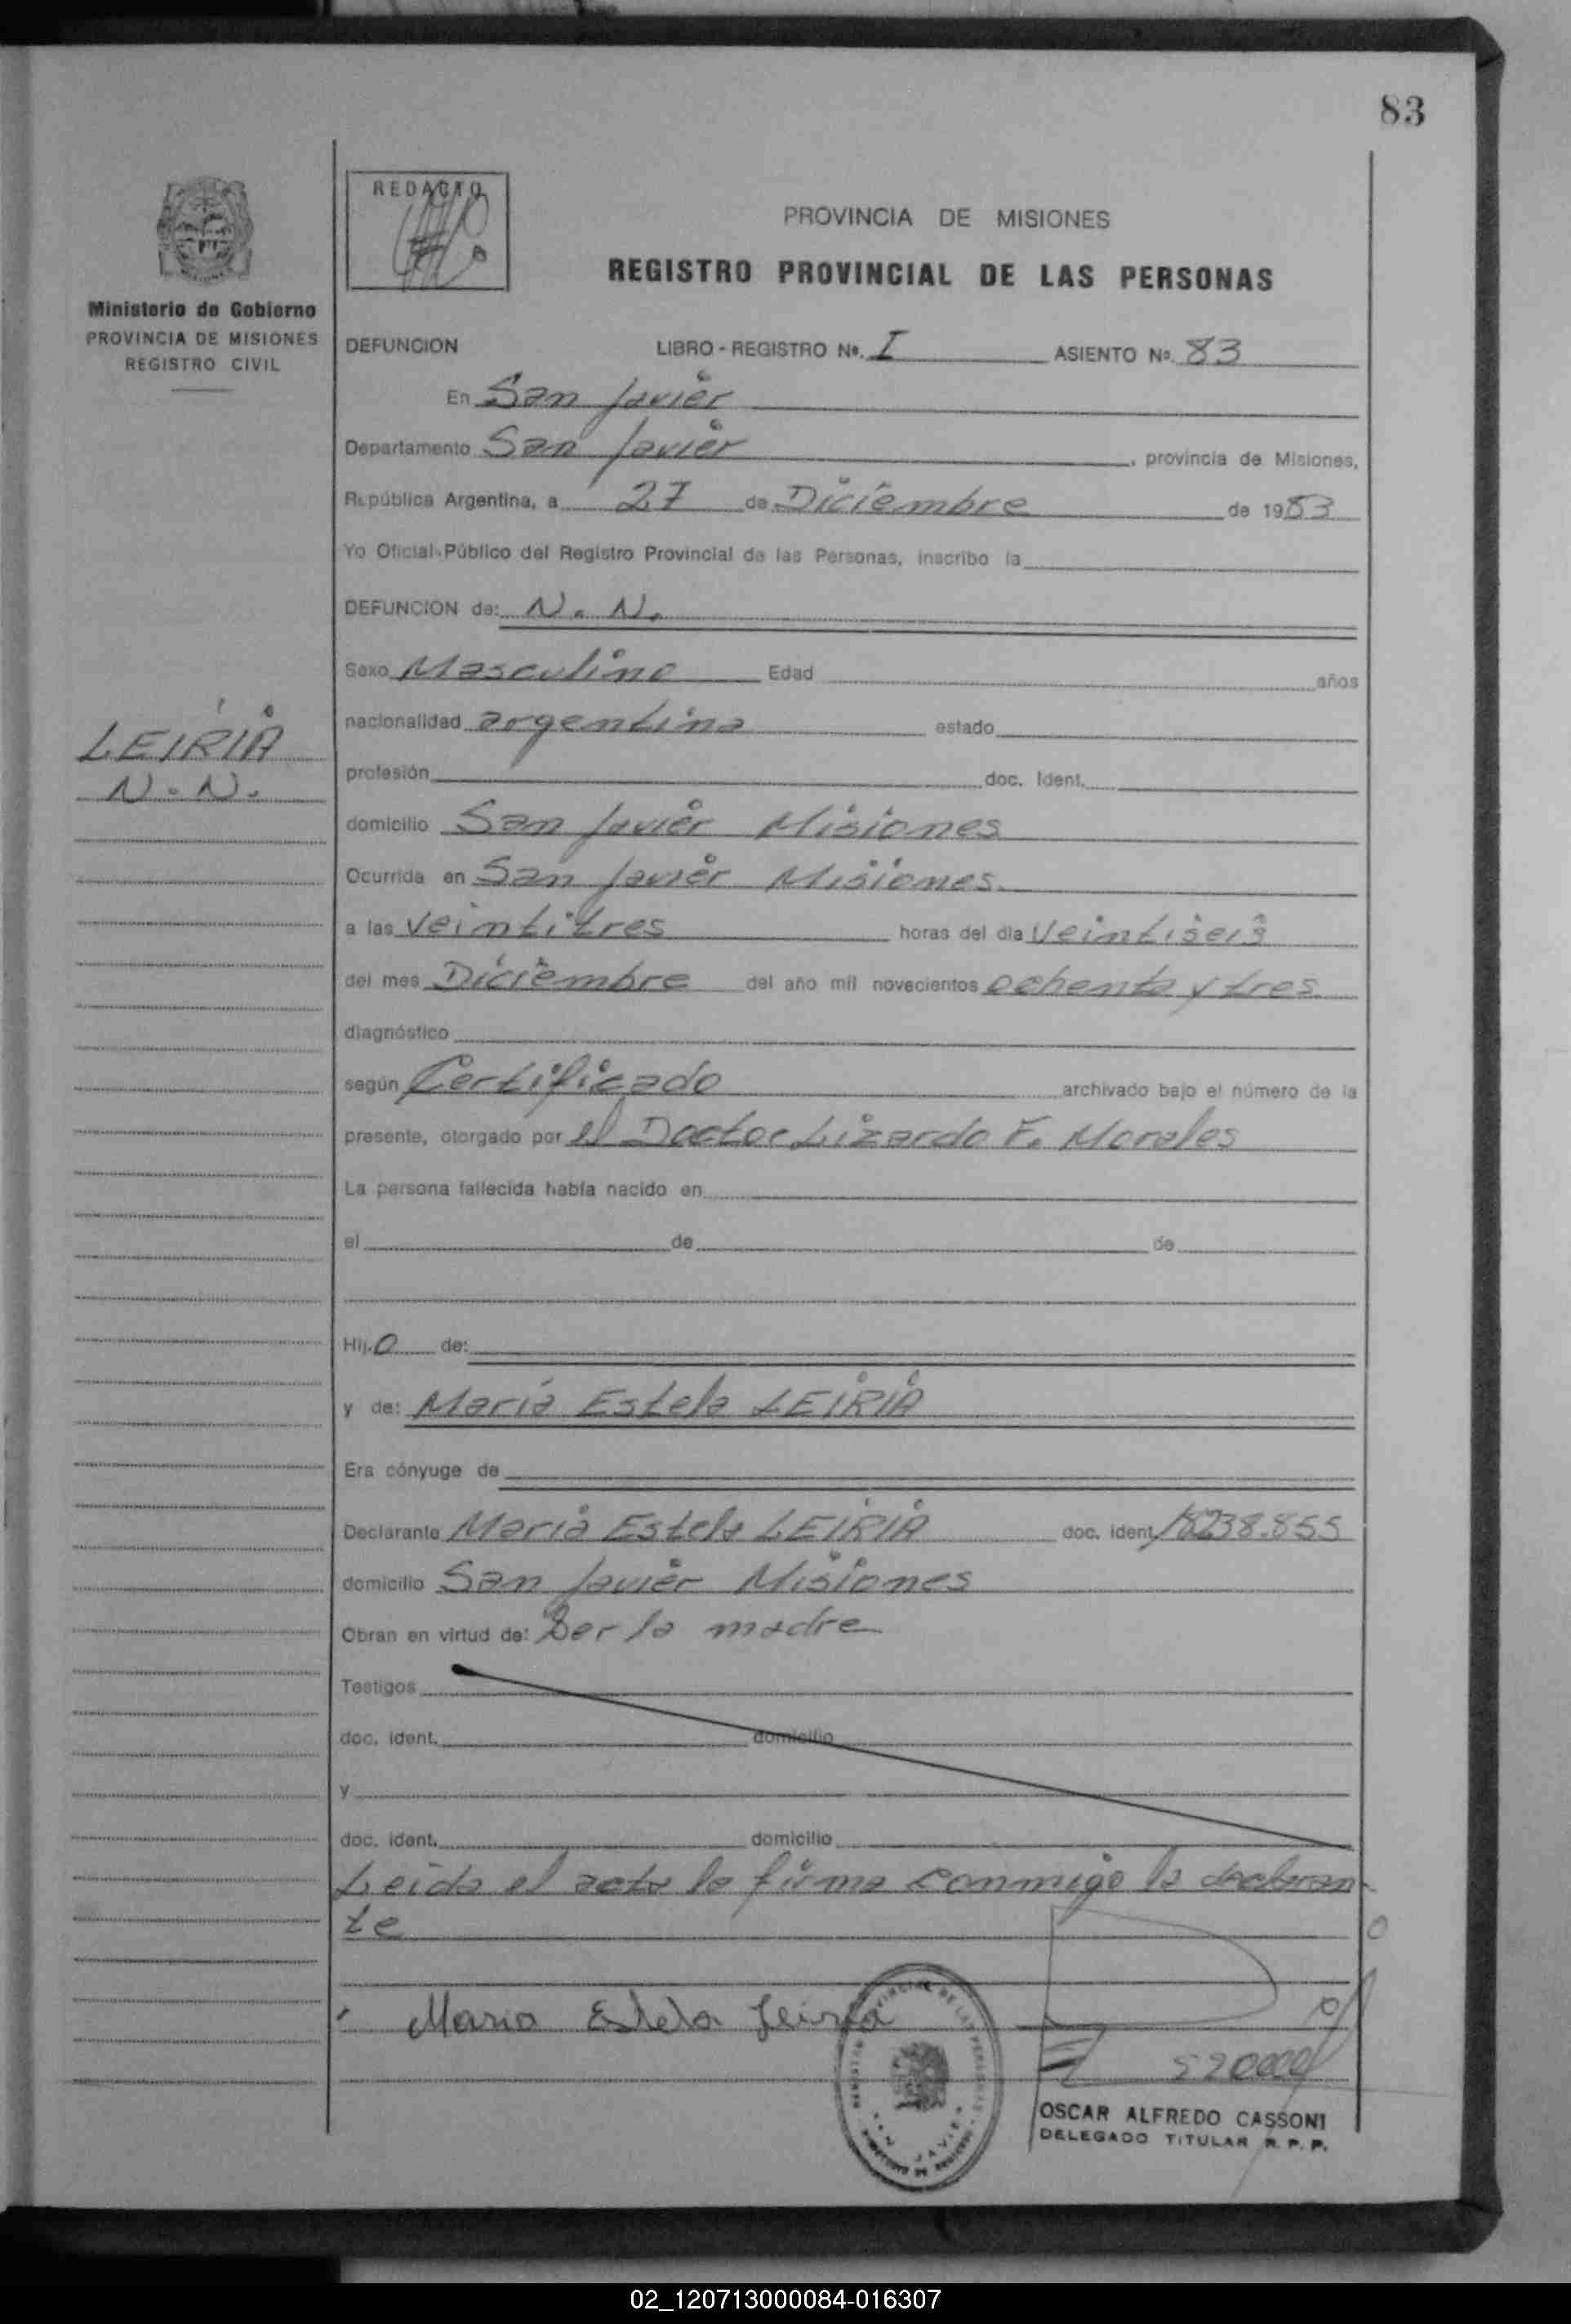 83
REDACTO
PROVINCIA DE MISIONES
REGISTRO PROVINCIAL DE LAS PERSONAS
Ministerio de Gobierno
PROVINCIA DE MISIONES
REGISTRO CIVIL
DEFUNCION LIBRO - REGISTRO Nº. I ASIENTO Nº. 83
En San Javier
Departamento San Javier, provincia de Misiones,
República Argentina, a 27 de Diciembre de 1983
Yo Oficial Público del Registro Provincial de las Personas, inscribo la
DEFUNCION de: N. N.
Sexo Masculino Edad años
nacionalidad argentina estado
LEIRIA
N. N.
profesión doc. Ident.
domicilio San Javier Misiones
Ocurrida en San Javier Misiones.
a las veintitres horas del día Veintiseis
del mes Diciembre del año mil novecientos ochenta y tres
diagnóstico
según Certificado archivado bajo el número de la
presente, otorgado por el Doctor Lizardo F. Morales
La persona fallecida había nacido en
el de de
Hij.o de:
y de: María Estela LEIRIA
Era cónyuge de
Declarante María Estela LEIRIA doc. ident. 18238.855
domicilio San Javier Misiones
Obran en virtud de: Ser la madre
Testigos
doc. ident. domicilio
y
doc. ident. domicilio
Leida el acta la firma conmigo la declaran-
te
Maria Estela Leiria
OSCAR ALFREDO CASSONI
DELEGADO TITULAR R. P. P.
02_120713000084-016307